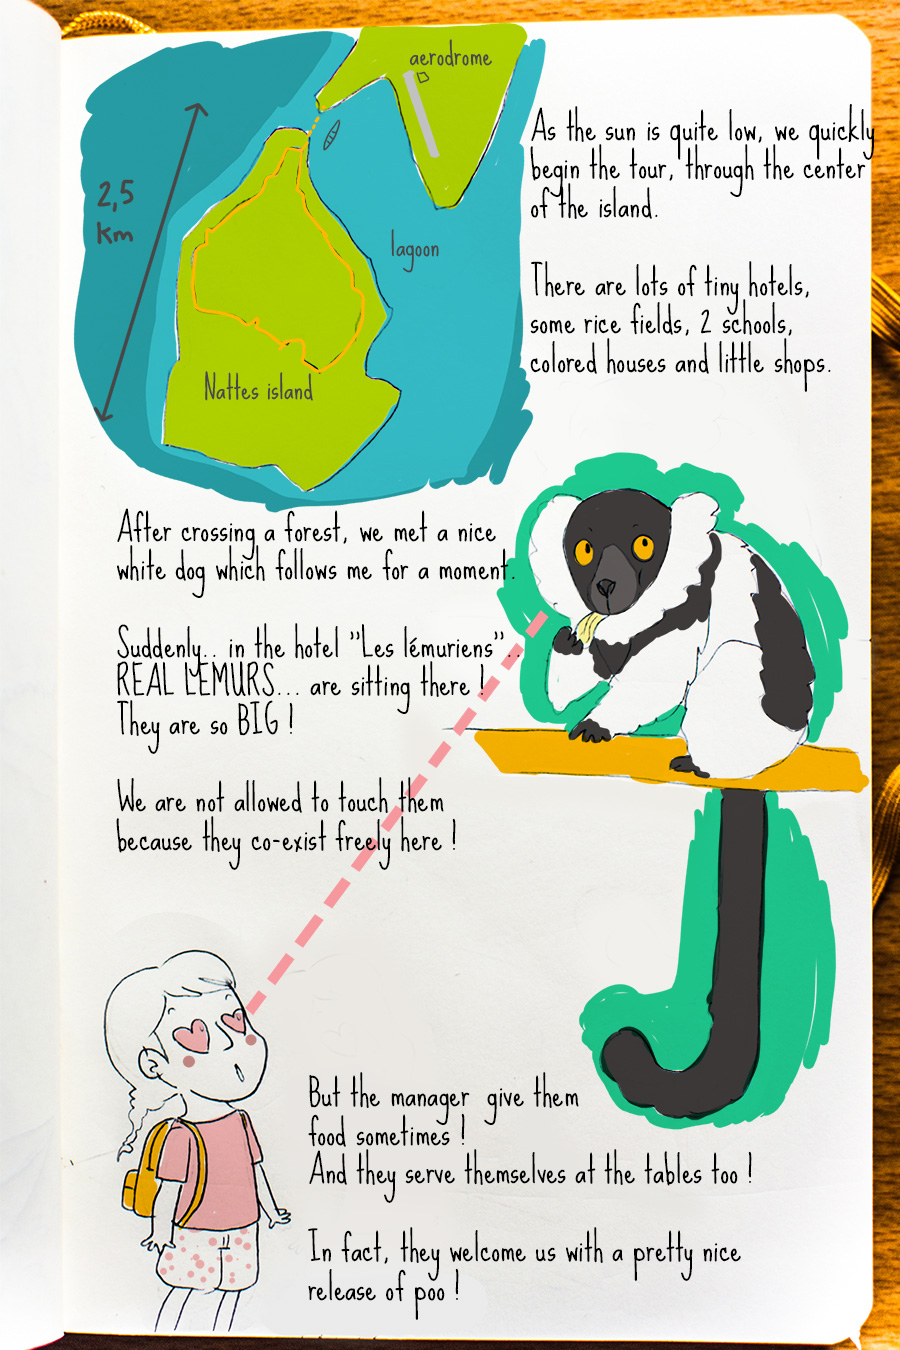 aerodrome
2,5
km
lagoon
Nattes island
As the sun is quite low, we quickly
begin the tour, through the center
of the island.
There are lots of tiny hotels,
some rice fields, 2 schools,
colored houses and little shops.
After crossing a forest, we met a nice
white dog which follows me for a moment.
Suddenly.. in the hotel "Les lémuriens"..
REAL LEMURS... are sitting there !
They are so BIG !
We are not allowed to touch them
because they co-exist freely here !
But the manager give them
food sometimes !
And they serve themselves at the tables too !
In fact, they welcome us with a pretty nice
release of poo !